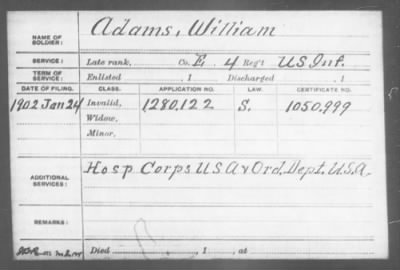 NAME OF SOLDIER: Adams, William
SERVICE: Late rank, Co. E, 4 Reg't US Inf.
TERM OF SERVICE: Enlisted , 1 Discharged , 1
DATE OF FILING. CLASS. APPLICATION NO. LAW. CERTIFICATE NO.
1902 Jan 24 Invalid, 1280,122 S. 1050,999
Widow,
Minor,
ADDITIONAL SERVICES: Hosp Corps USA & Ord. Dept. U.S.A.
REMARKS:
Died , 1 , at